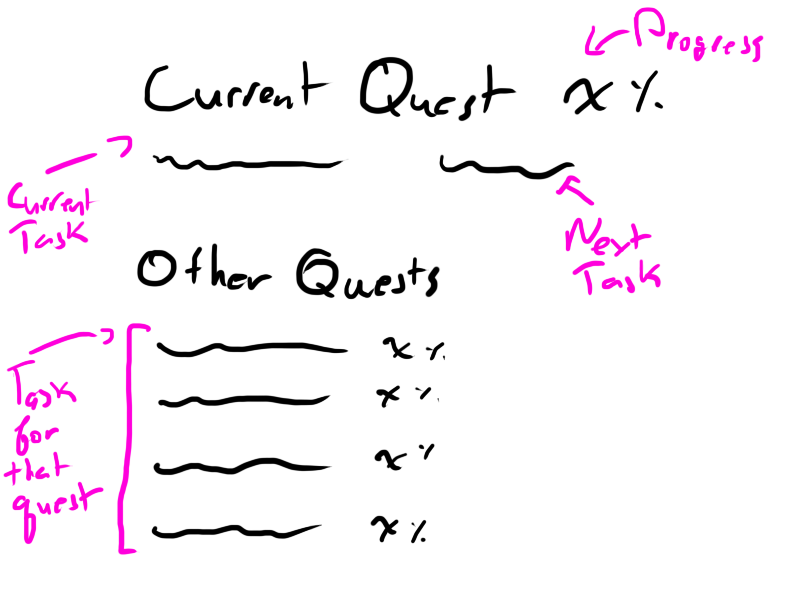 Progress
Current Quest x %
Current
Task
Next
Task
Other Quests
x %
Task
for
that
quest
x %
x %
x %